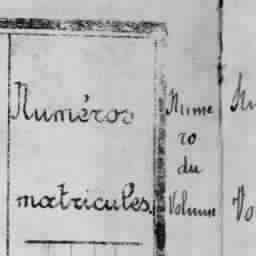 Numéros
matricules.
Numé
ro
du
Volume
Nu
Vo